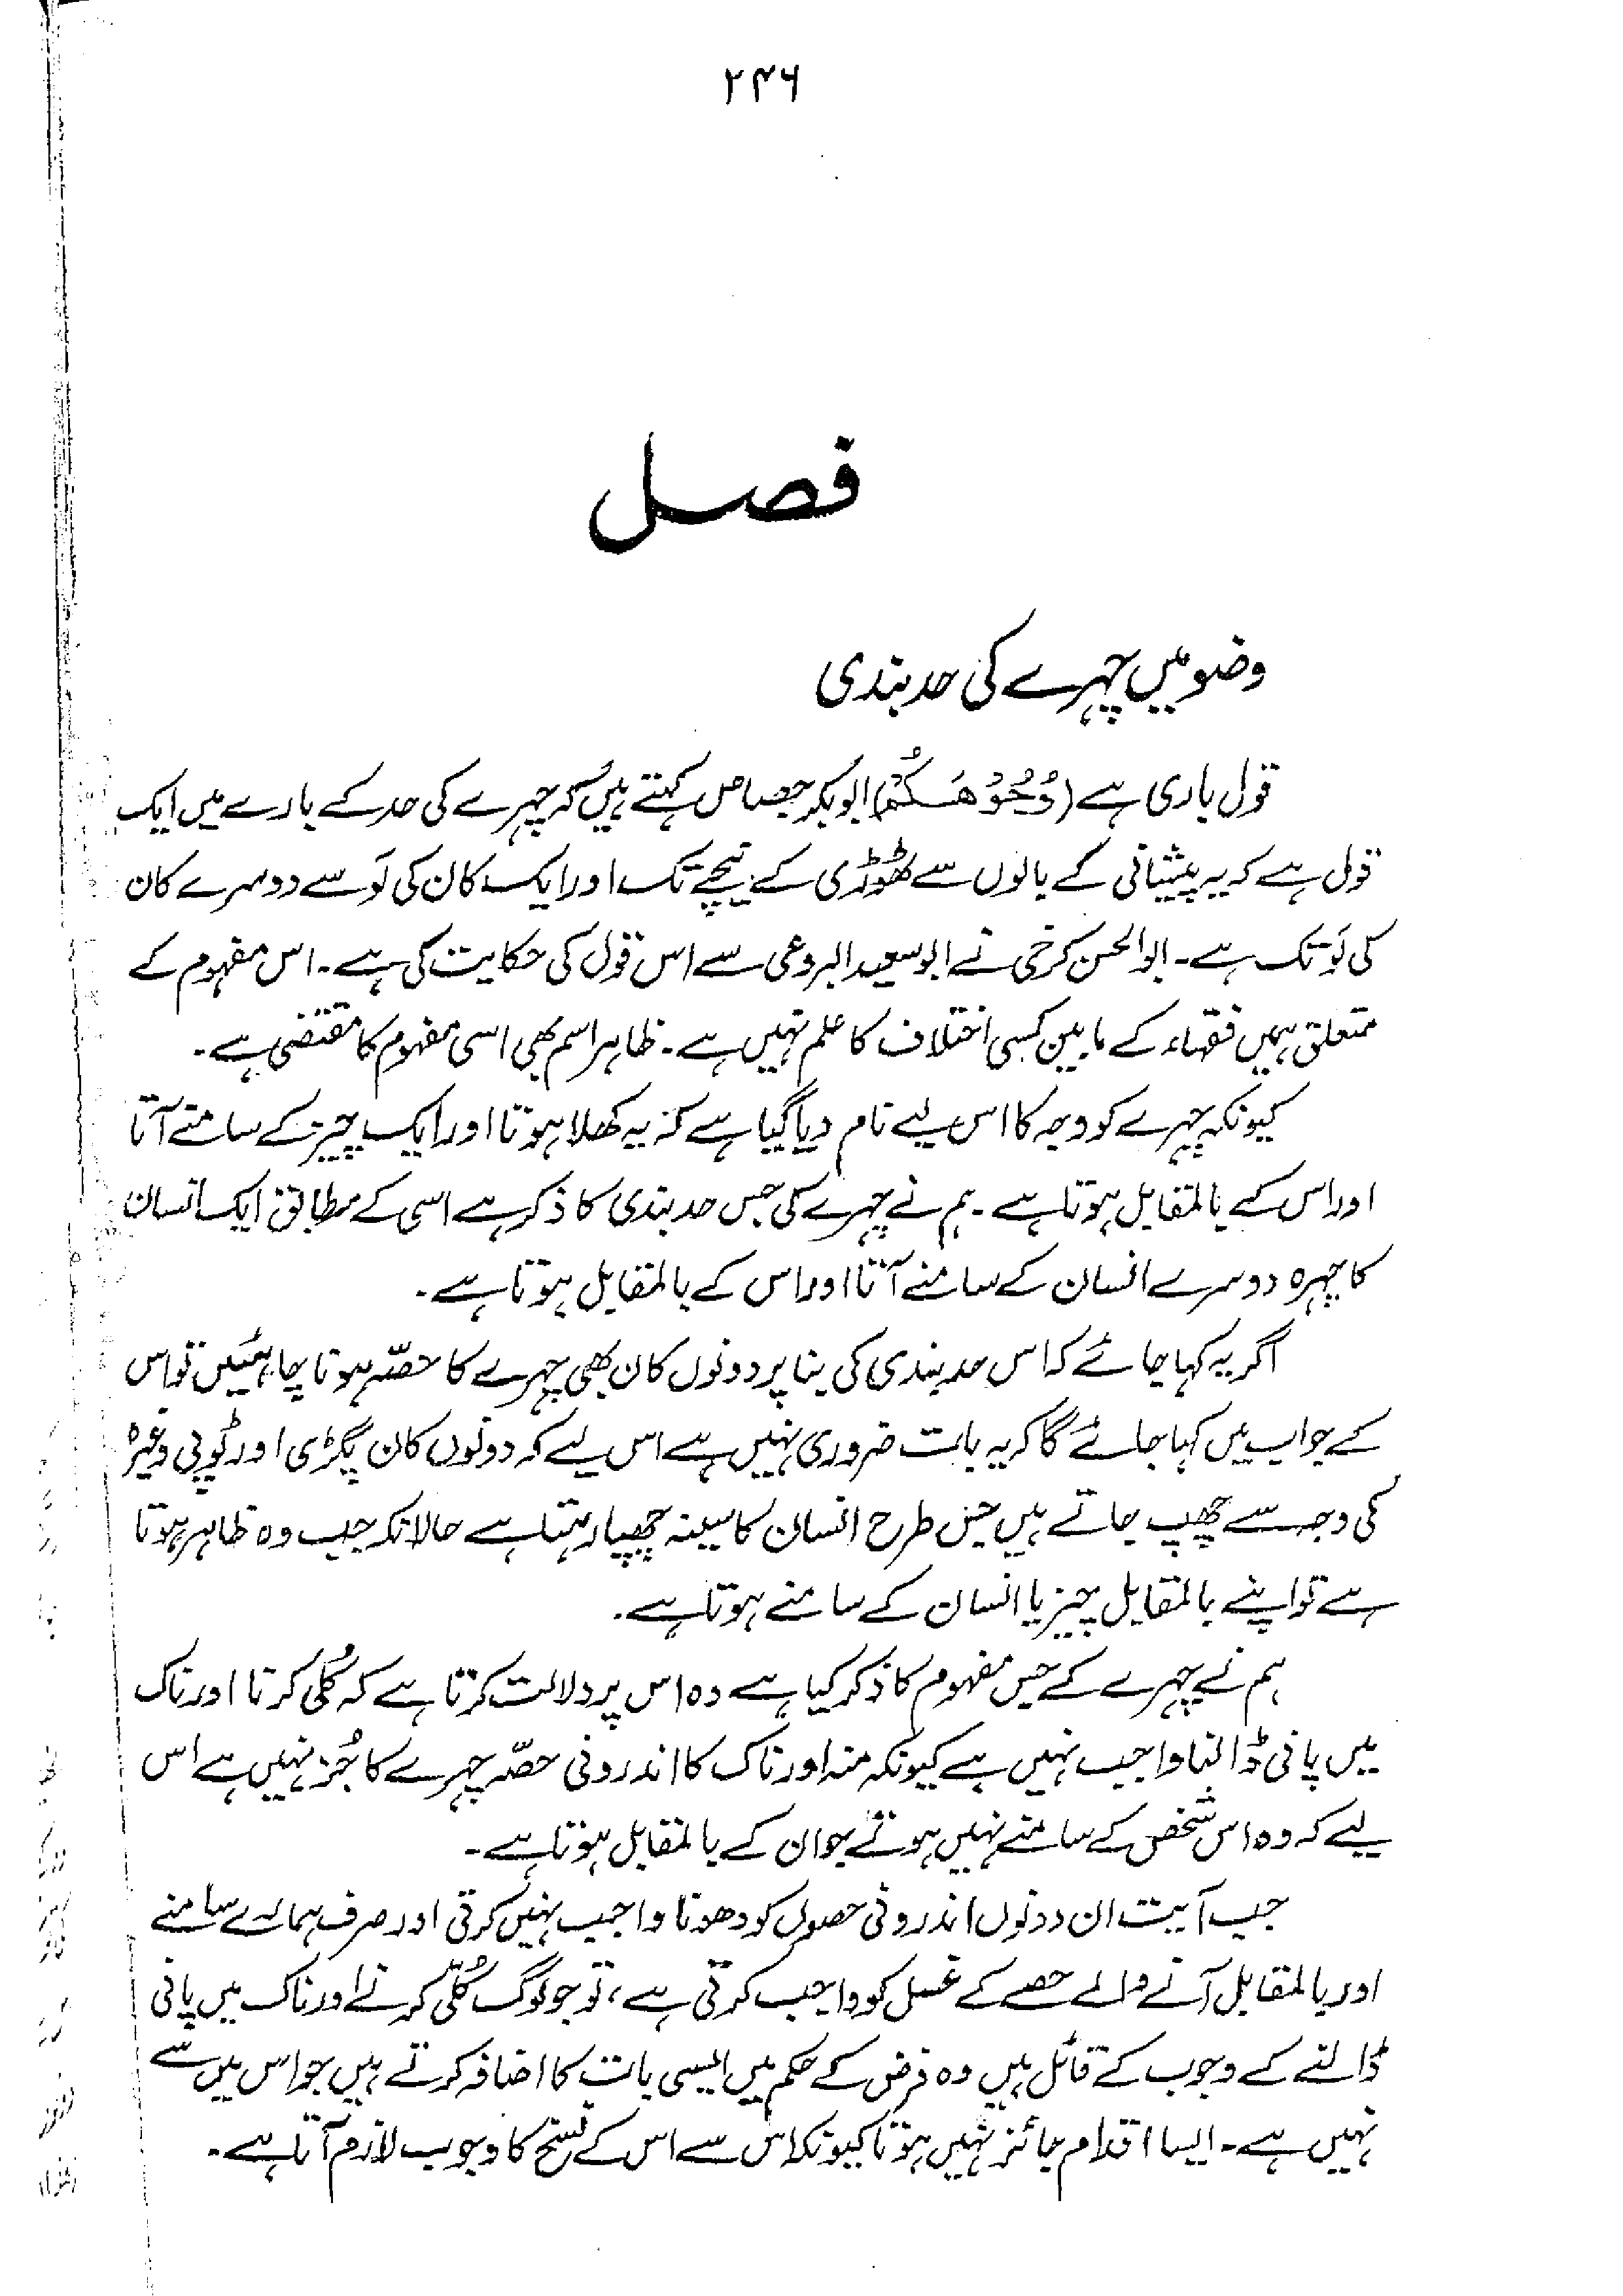 ۲۴۶
فصل
وضو میں چہرے کی حد بندی
قول باری ہے (وُجُوْهَكُمْ) ابوبکر جصاص کہتے ہیں کہ چہرے کی حد کے بارے میں ایک
قول ہے کہ یہ پیشانی کے بالوں سے ٹھوڑی کے نیچے تک اور ایک کان کی لَو سے دوسرے کان
کی لَو تک ہے۔ ابوالحسن کرخی نے ابوسعید البروعی سے اس قول کی حکایت کی ہے۔ اس مفہوم کے
متعلق ہمیں فقہاء کے مابین کسی اختلاف کا علم نہیں ہے۔ ظاہر اسم بھی اسی مفہوم کا مقتضی ہے۔
کیونکہ چہرے کو وجہ کا اس لیے نام دیا گیا ہے کہ یہ کھلا ہوتا اور ایک چیز کے سامنے آتا
اور اس کے بالمقابل ہوتا ہے۔ ہم نے چہرے کی جس حد بندی کا ذکر ہے اسی کے مطابق ایک انسان
کا چہرہ دوسرے انسان کے سامنے آتا اور اس کے بالمقابل ہوتا ہے۔
اگر یہ کہا جائے کہ اس حد بندی کی بنا پر دونوں کان بھی چہرے کا حصّہ ہونا چاہئیں تو اس
کے جواب میں کہا جائے گا کہ یہ بات ضروری نہیں ہے اس لیے کہ دونوں کان پگڑی اور ٹوپی وغیرہ
کی وجہ سے چھپ جاتے ہیں جس طرح انسان کا سینہ چھپا رہتا ہے حالانکہ جب وہ ظاہر ہوتا
ہے تو اپنے بالمقابل چیز یا انسان کے سامنے ہوتا ہے۔
ہم نے چہرے کے جس مفہوم کا ذکر کیا ہے وہ اس پر دلالت کرتا ہے کہ کُلی کرنا اور ناک
میں پانی ڈالنا واجب نہیں ہے کیونکہ منہ اور ناک کا اندرونی حصّہ چہرے کا جُز نہیں ہے اس
لیے کہ وہ اس شخص کے سامنے نہیں ہوتے جو ان کے بالمقابل ہوتا ہے۔
جب آیت ان دونوں اندرونی حصوں کو دھونا واجب نہیں کرتی اور صرف ہمارے سامنے
اور بالمقابل آنے والے حصے کے غسل کو واجب کرتی ہے، تو جو لوگ کُلّی کرنے اور ناک میں پانی
ڈالنے کے وجوب کے قائل ہیں وہ فرض کے حکم میں ایسی بات کا اضافہ کرتے ہیں جو اس میں سے
نہیں ہے۔ ایسا اقدام جائز نہیں ہوتا کیونکہ اس سے اس کے نسخ کا وجوب لازم آتا ہے۔